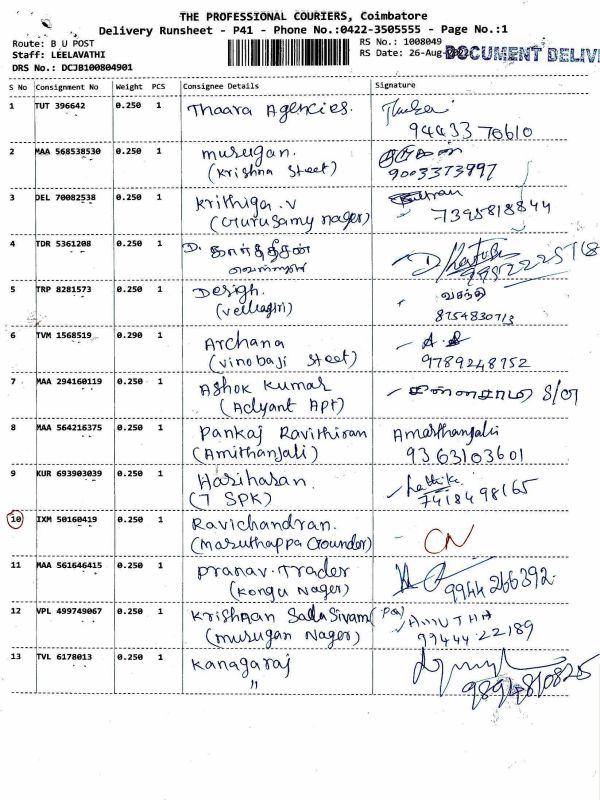 THE PROFESSIONAL COURIERS, Coimbatore
Delivery Runsheet - P41 - Phone No.:0422-3505555 - Page No.:1
Route: B U POST
RS No.: 1008049
Staff: LEELAVATHI
RS Date: 26-Aug-
DOCUMENT DELIV
DRS No.: DCJB100804901
S No Consignment No Weight PCS Consignee Details Signature
1 TUT 396642 0.250 1 Thaara Agencies.
94433 70610
2 MAA 568538530 0.250 1 murugan.
(Krishna Street) 9003373997
3 DEL 70082538 0.250 1 Krithiga .V
(Gurusamy nager) 7395818844
4 TDR 5361208 0.250 1 D. கார்த்தீசன்
5 TRP 8281573 0.250 1 Design. வசந்தி
(vellagiri) 8754830713
6 TVM 1568519 0.290 1 Archana A.S
(vinobaji Street) 9789248952
7 MAA 294160119 0.250 1 Ashok Kumar S/O
(Adyant Apt)
8 MAA 564216375 0.250 1 Pankaj Ravithiran Amarthanjali
(Amithanjali) 9363103601
9 KUR 693903039 0.250 1 Hariharan
(7 SPK) 7418498165
10 IXM 50160419 0.250 1 Ravichandran. CN
(Maruthappa Gounder)
11 MAA 561646415 0.250 1 Pranav. Trader
(Kongu Nager) 9944266392
12 VPL 499749067 0.250 1 Krishnan SadaSivam AMUTHA
(murugan Nager) 99444 22189
13 TVL 6178013 0.250 1 Kanagaraj
" 9894810825